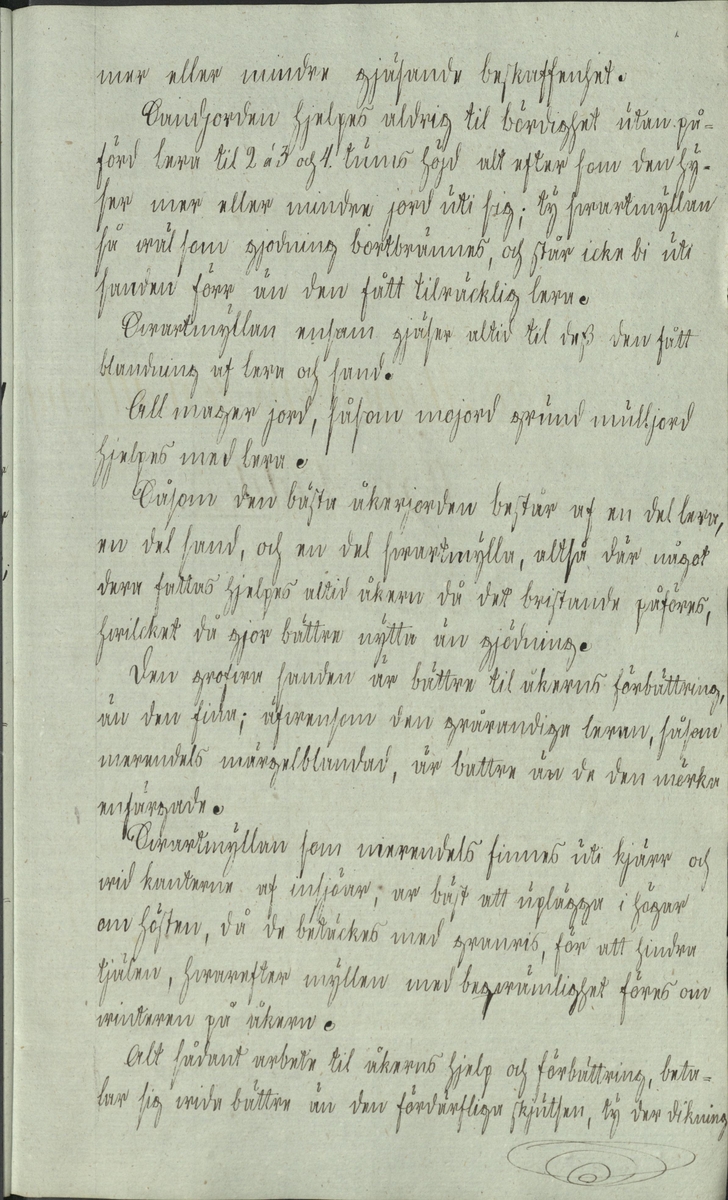 mer eller mindre gjäsande beskaffenhet.
Sandjorden hjelpes aldrig til bördighet utan på-
förd lera til 2 á 3 och 4. tums höjd alt efter som den hy-
ser mer eller mindre jord uti sig; ty swartmyllan
så wäl som gjödning bortbrännes, och står icke bi uti
sanden förr än den fått tilräcklig lera.
Swartmyllan ensam gjäser altid til deß den fått
blandning af lera och sand.
All mager jord, såsom mojord grund mulljord
hjelpes med lera.
Såsom den bästa åkerjorden består af en del lera,
en del sand, och en del swartmylla, altså där något
dera fattas hjelpes altid åkern då det bristande påföres,
hwilcket då gjör bättre nytta än gjödning.
Den grofwa sanden är bättre til åkerns förbättring,
än den fina; äfwensom den grårandiga leran, såsom
merendels märgelblandad, är battre än de den mörka
enfärgade.
Swartmyllan som merendels finnes uti kjärr och
wid kanterne af insjöar, är bäst att uplägga i högar
om hösten, då de betäckes med granris, för att hindra
tjälen, hwarefter myllen med beqwämlighet föres om
winteren på åkern.
Alt sådant arbete til åkerns hjelp och förbättring, beta-
lar sig wida bättre än den fördärfliga skjutsen, ty der dikning